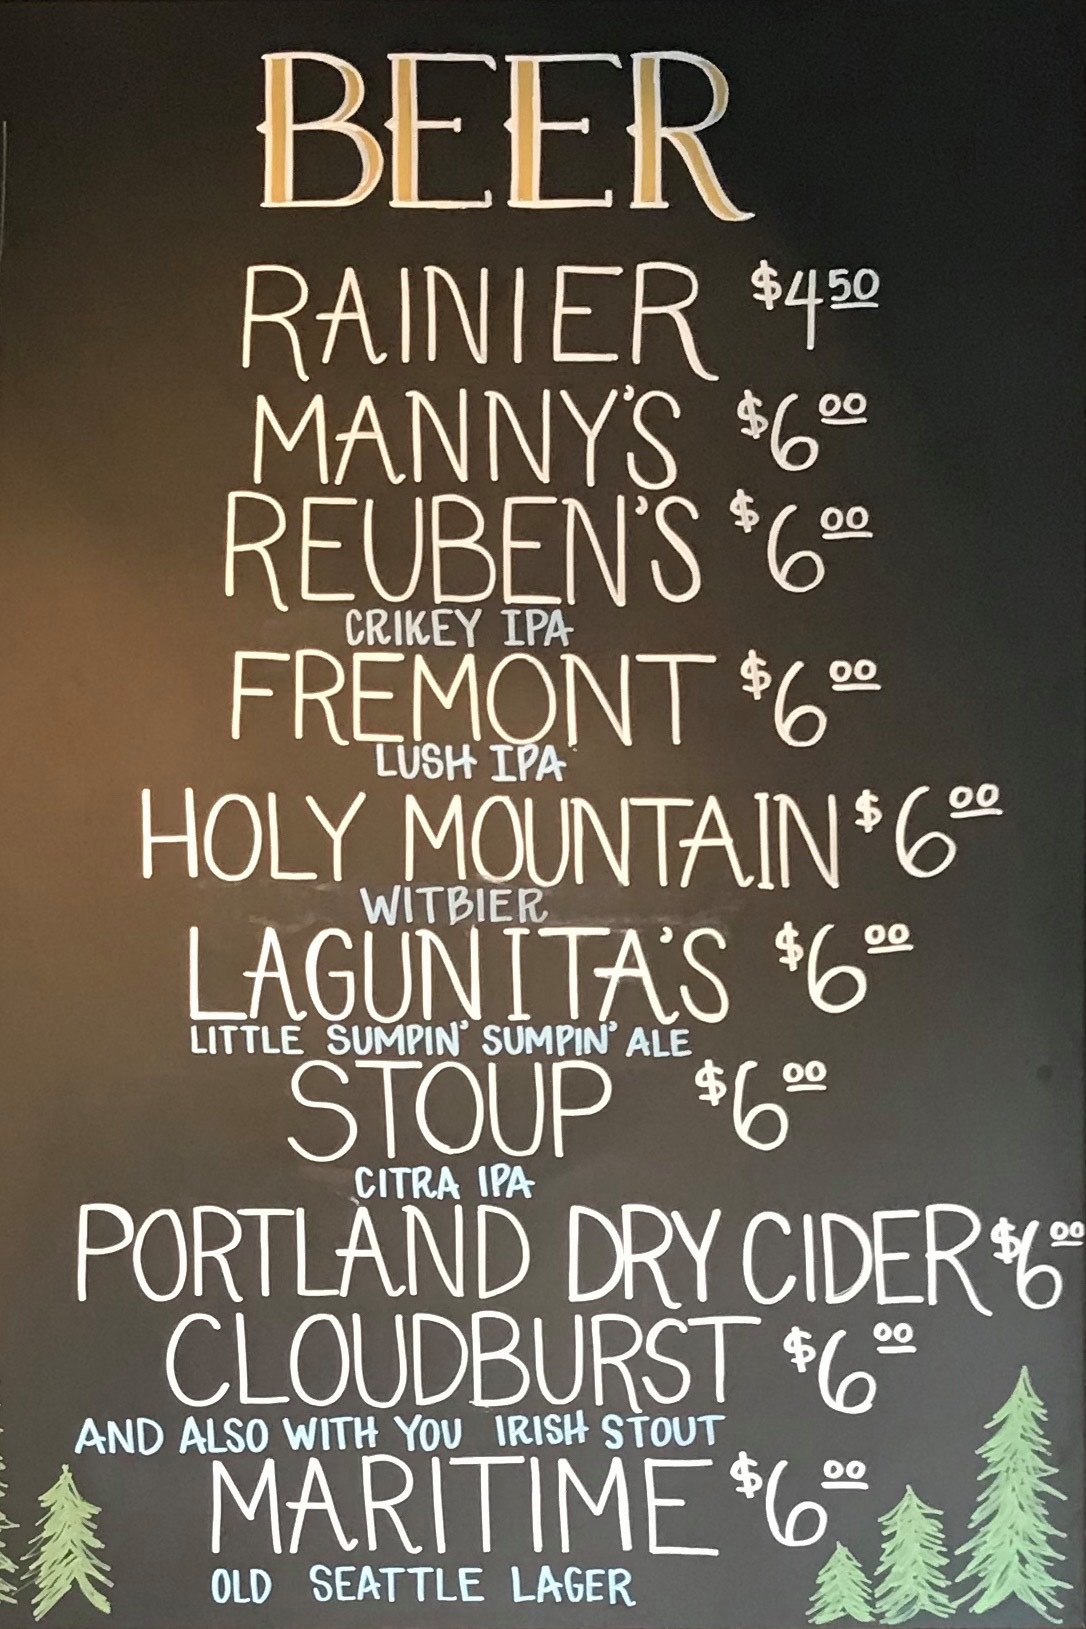 BEER
RAINIER $4.50
MANNY'S $6.00
REUBEN'S $6.00
CRIKEY IPA
FREMONT $6.00
LUSH IPA
HOLY MOUNTAIN $6.00
WITBIER
LAGUNITA'S $6.00
LITTLE SUMPIN' SUMPIN' ALE
STOUP $6.00
CITRA IPA
PORTLAND DRY CIDER $6.00
CLOUDBURST $6.00
AND ALSO WITH YOU IRISH STOUT
MARITIME $6.00
OLD SEATTLE LAGER